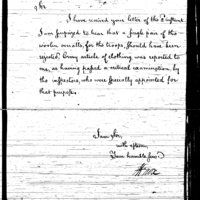 Sir
I have received your letter of the 2 instant.
I am surprised to hear that a single pair of the
woolen overalls, for the troops, should have been
rejected; Every article of clothing was reported to
me, as having passed a critical examination by
the inspectors, who were specially appointed for
that purpose.
I am Sir,
with esteem,
Your humble Serv.